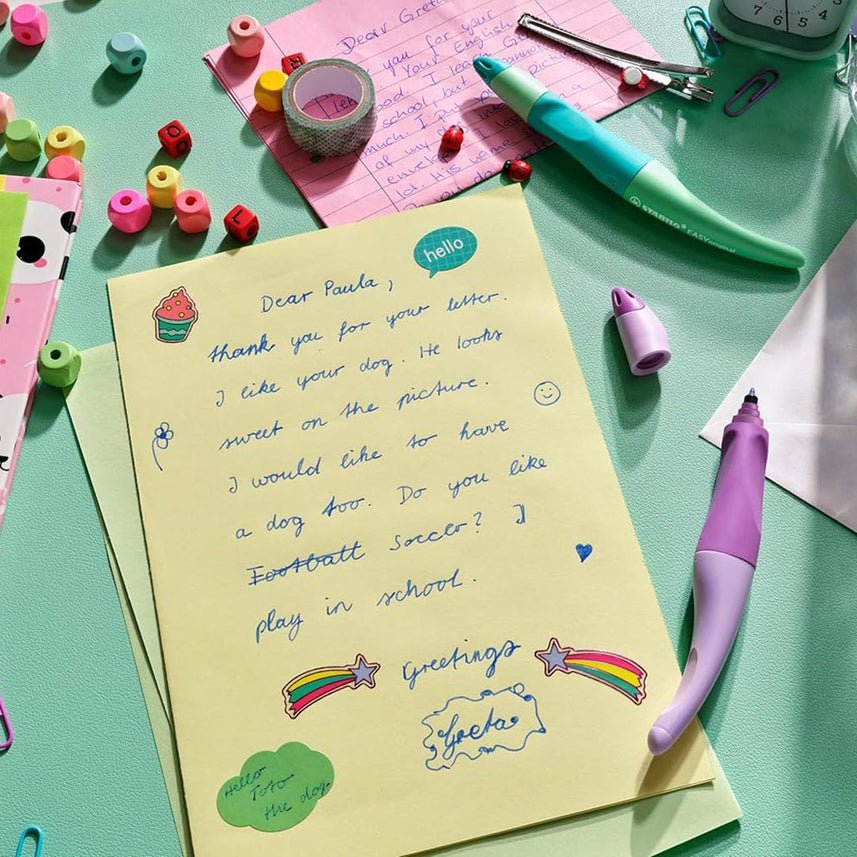 Dear Greta
you for your
Your English
I learn
school, but I cannot
much. I put a picture
of my dog into the
envelope. I
lot. His name is
you
STABILO EASYoriginal
7 6 5 4
O
L
hello
Dear Paula,
thank you for your letter.
I like your dog. He looks
sweet on the picture.
I would like to have
a dog too. Do you like
Football Soccer? I
play in school.
Greetings
Greta
Hello
Toto
the dog